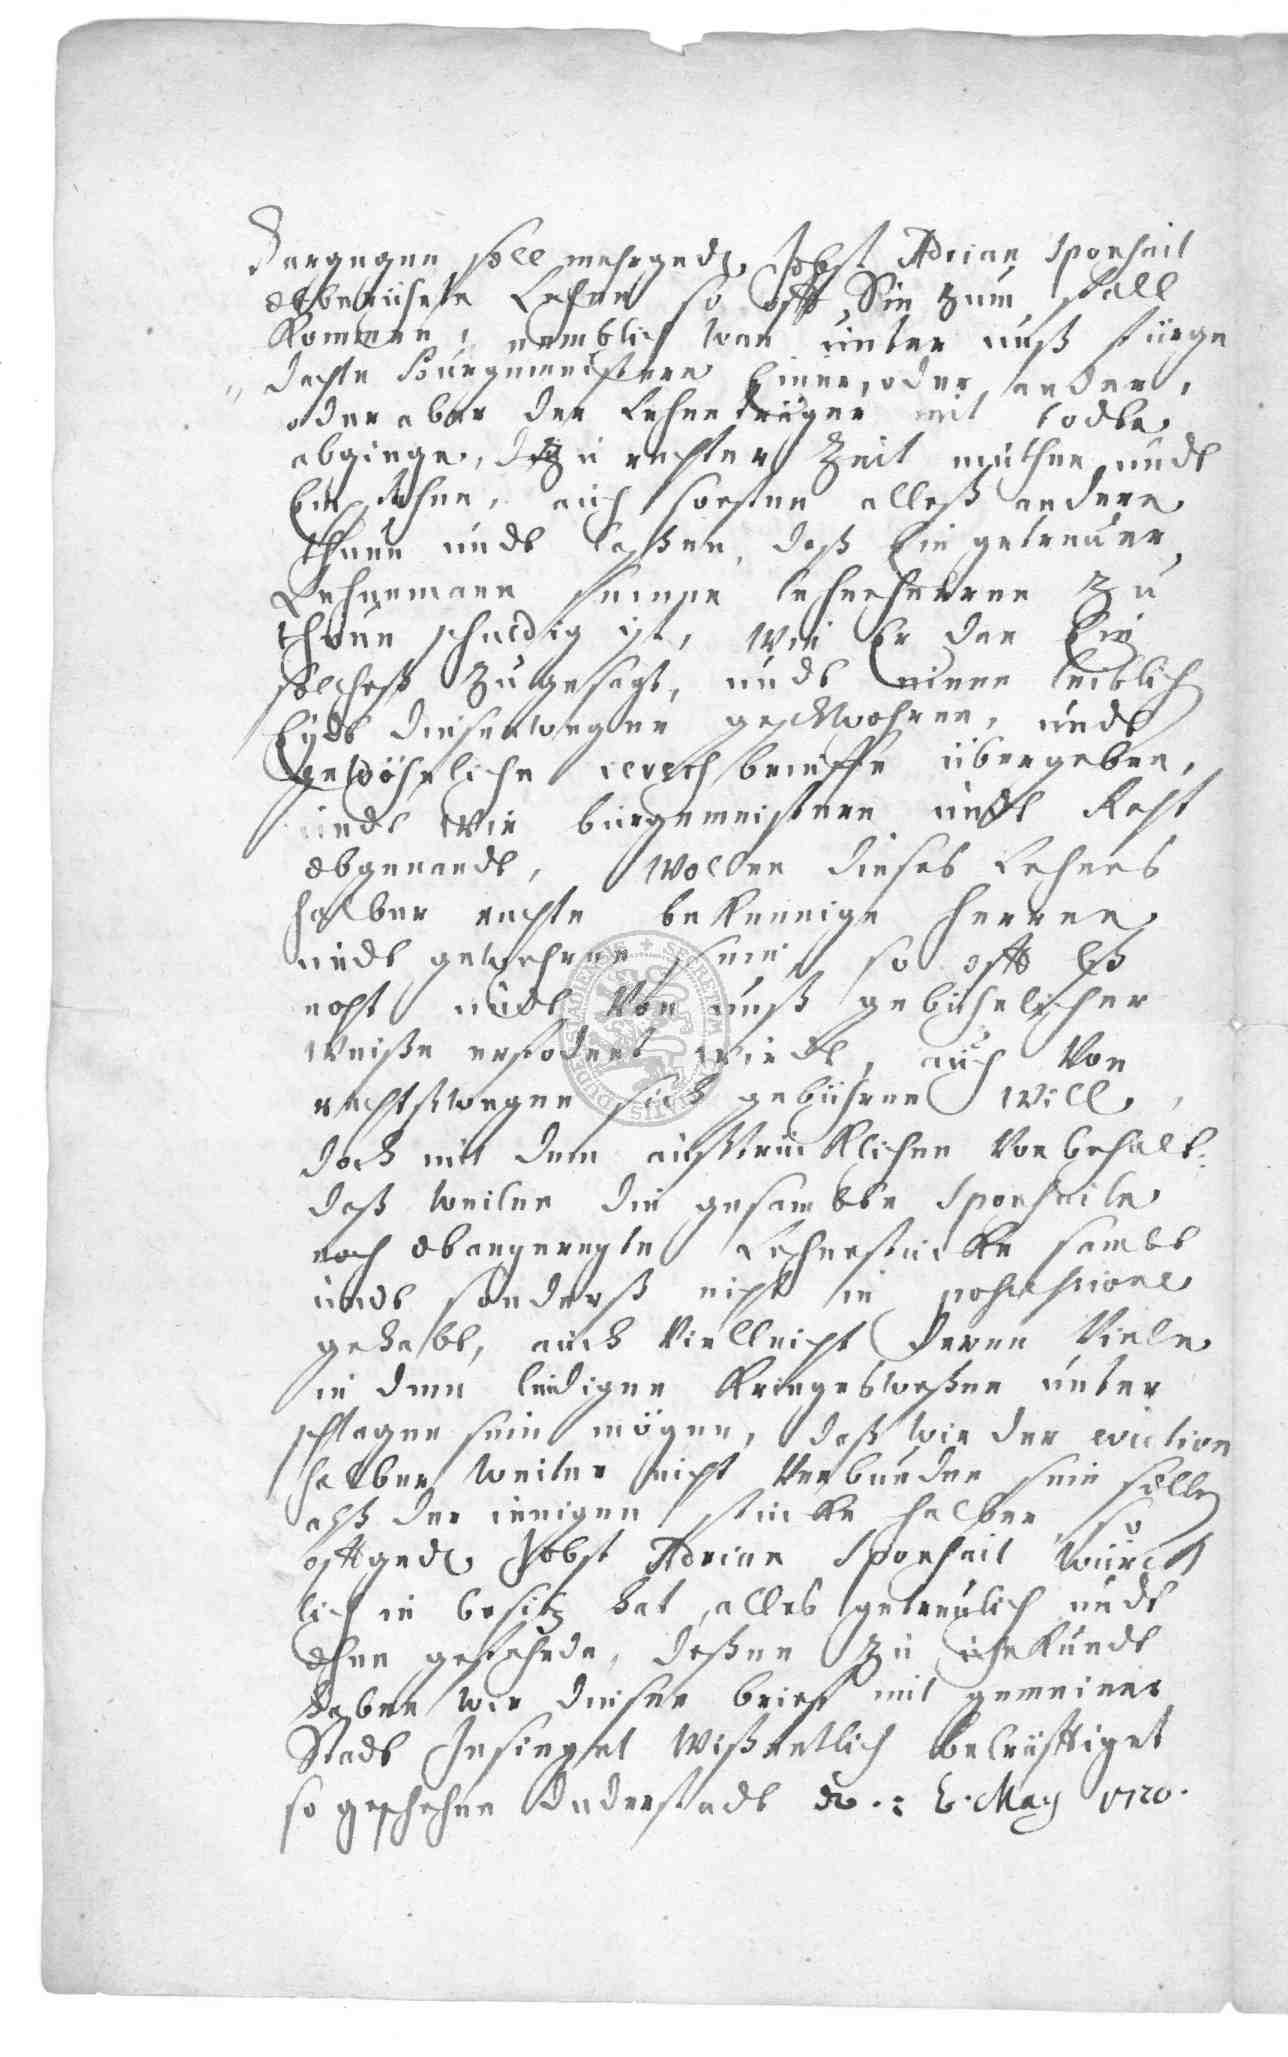 Dargegen soll mehrged. Jobst Adrian Sporheil
obberührte Lehne so offt Sie zum fall
kommen, nemblich wan unter unß fürge
dachte Burgemeistere Einer, oder ander,
oder aber der Lehnedräger mit todte
abginge, zu rechter Zeit muthen undt
Empfehen, auch sonsten alleß andere
thuen undt laßen, daß Ein getreuer
Lehnemann seinen lehneherren zu
thuen schuldig ist, wie Er dan Ein
solcheß zugesagt, undt einen leiblich
Eydt dieserwegen geschwohren, undt
gewöhnliche reversbrieffe übergeben,
undt wir burgemeistere undt Raht
obgenandt, wollen dieses Lehnes
halber rechte bekennige Herren
undt gewehren sein so offt Eß
noht undt von unß gebührlicher
weiße erfodert wirdt, auch von
rechtswegen sich gebühren will,
doch mit dem außtrücklichen Vorbehalt
daß weilen die gesambte Sporheile
noch obangeregte Lehnestücke sambt
undt sonderß nicht in possessione
gehabt, auch Vielleicht deren Viele
in dem leidigen Kriegesweßen unter
schlagen sein mögen, daß wir der eviction
halber weiter nicht verbunden sein sollen
alß der ienigen stücke halber so
offtged. Jobst Adrian Sporheil würck
lich in besitz hat, alles getreulich undt
ohne gefehrde, deßen zu uhrkundt
haben wir diesen brief mit gemeiner
Stadt Insiegel wißentlich bekräfftiget
so geschehen Duderstadt d. : 6. May 1720.